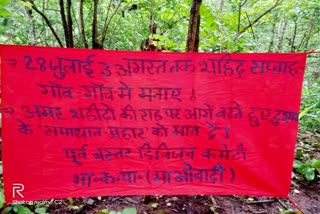 → 28 जुलाई 3 अगस्त तक शहिद सप्ताह
गाँव-गाँव में मनाए!
→ अमर शहीदों की राह पर आगे बढ़ते हुए दुश्मन
के 'समाधान-प्रहार' को मात दें।
पूर्व बस्तर डिविजन कमेटी
भा॰क॰पा॰(माओवादी)
R
Shot on realme C2